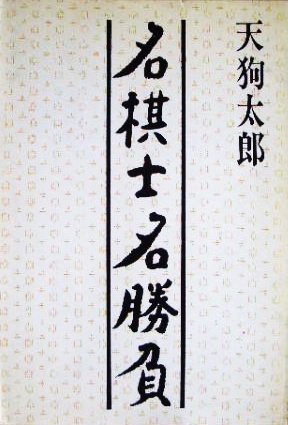 天狗太郎
名棋士名勝負